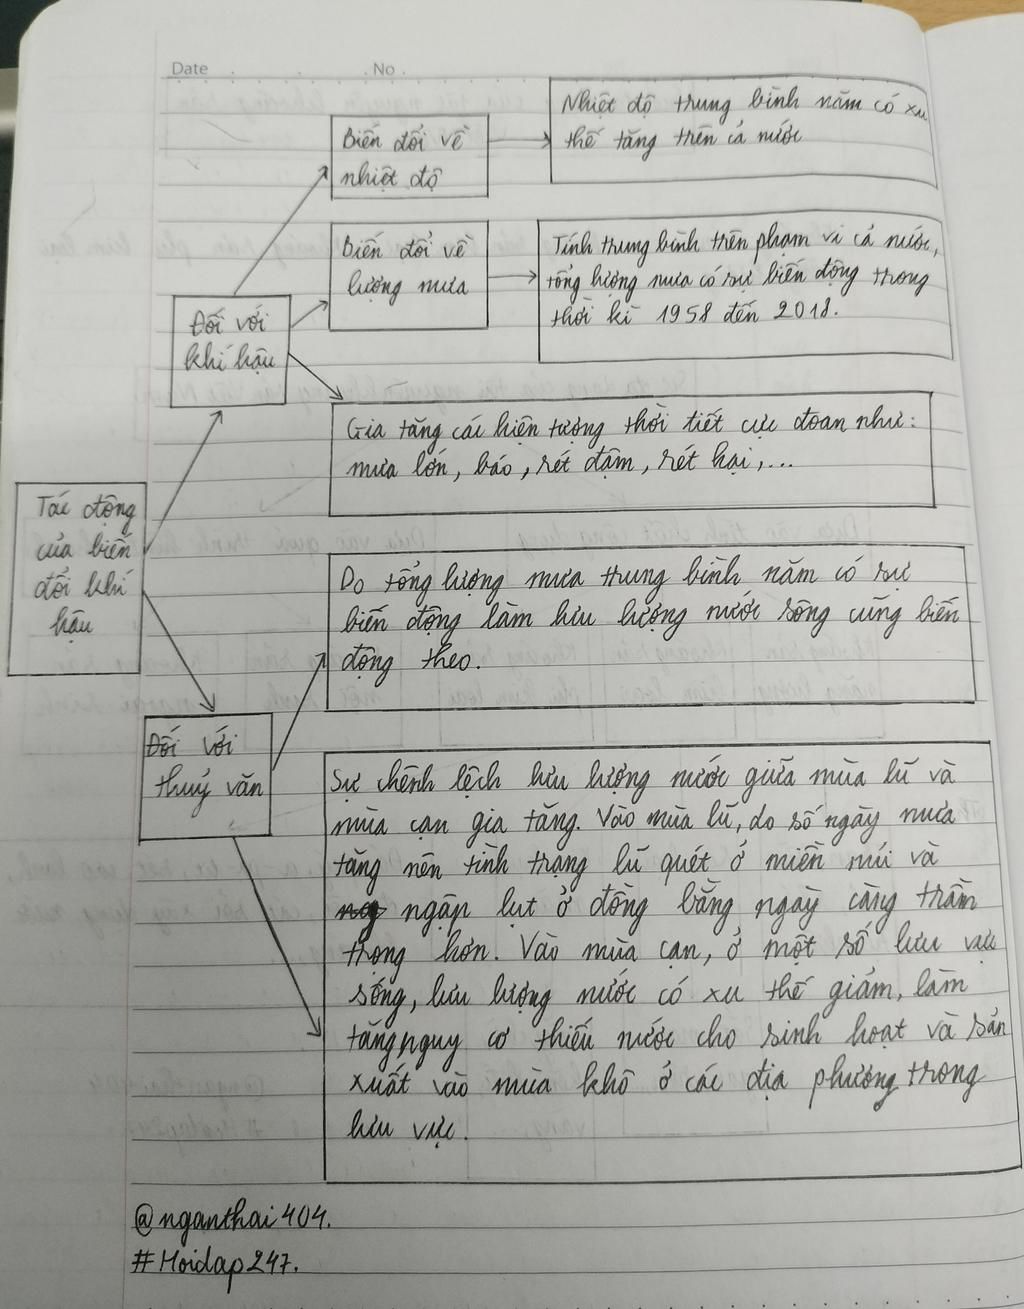 Date No.
Nhiệt độ trung bình năm có xu
thế tăng trên cả nước
Biến đổi về
nhiệt độ
Biến đổi về
lượng mưa
Tính trung bình trên phạm vi cả nước,
tổng lượng mưa có sự biến động trong
thời kì 1958 đến 2018.
Đối với
khí hậu
Gia tăng các hiện tượng thời tiết cực đoan như:
mưa lớn, báo, rét đậm, rét hại,...
Tác động
của biến
đổi khí
hậu
Do tổng lượng mưa trung bình năm có sự
biến động làm lưu lượng nước sông cũng biến
động theo.
Đối với
thuỷ văn
Sự chênh lệch lưu lượng nước giữa mùa lũ và
mùa cạn gia tăng. Vào mùa lũ, do số ngày mưa
tăng nên tình trạng lũ quét ở miền núi và
ngập lụt ở đồng bằng ngày càng trầm
trọng hơn. Vào mùa cạn, ở một số lưu vực
sống, lưu lượng nước có xu thế giảm, làm
tăng nguy cơ thiếu nước cho sinh hoạt và sản
xuất vào mùa khô ở các địa phương trong
lưu vực.
@nganthai404.
#Hoidap247.